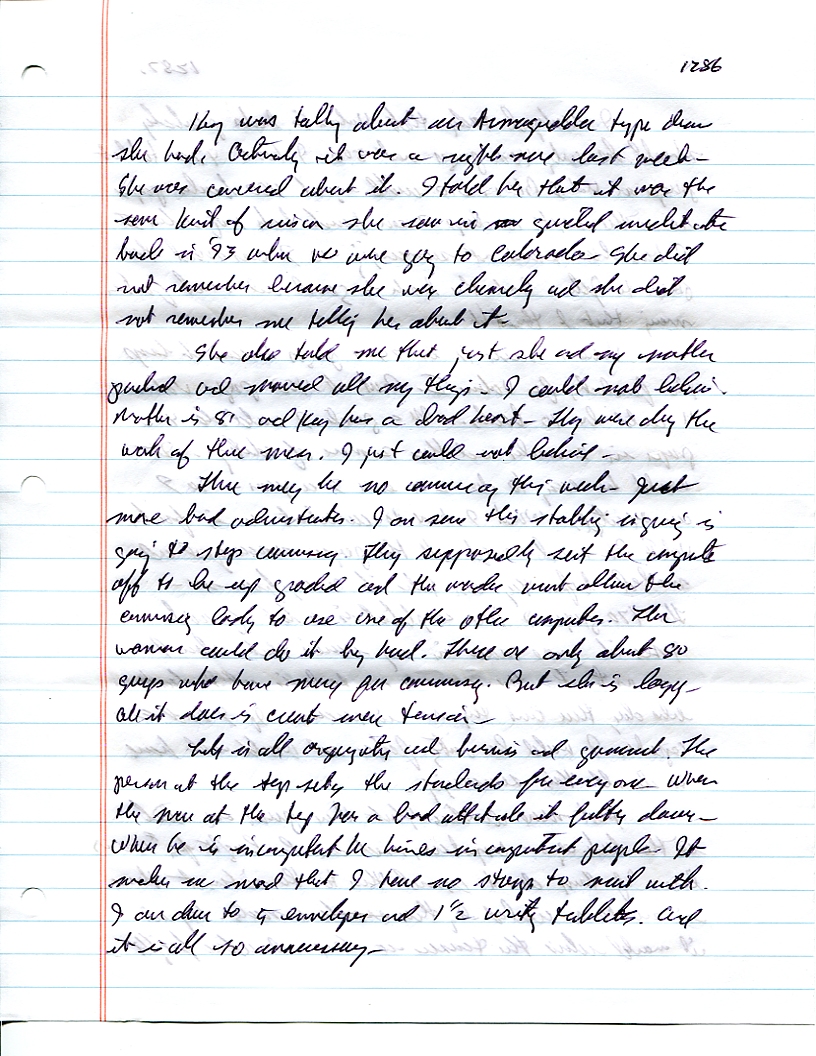 1286
Kay was talking about an Armageddon type dream
she had. Actually it was a nightmare last week -
She was concerned about it. I told her that it was the
same kind of vision she saw in guided meditation
back in 93 when we were going to Colorado. She did
not remember because she was and she did
not remember me telling her about it -
She also told me that just she and my mother
packed and moved all my things - I could not believe.
Mother is 81 and Kay has a bad heart - They were doing the
work of three men. I just could not believe -
There may be no commissary this week - Just
more bad administration. I am sure this stabbing is going
going to stop commissary. They supposedly sent the computer
off to be up graded and the warden wont allow the
commissary lady to use one of the other computers. The
woman could do it by hand. There are only about 80
guys who have money for commissary. But she is lazy -
all it does is create more tension -
in all organization and business and government. The
person at the top sets the standards for everyone when
the man at the top has a bad attitude it filters down -
When he is incompetent he hires incompetent people. It
makes me mad that I have no stamps to mail with.
I am down to 5 envelopes and 1 1/2 writing tablets. and
it is all so unnecessary -